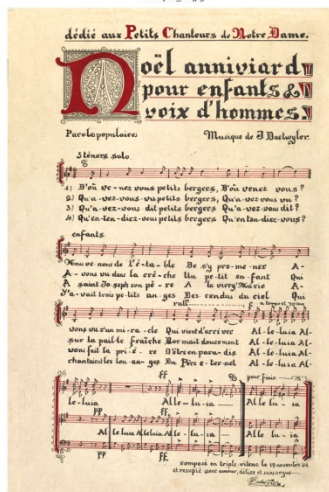 dédié aux Petits Chanteurs de Notre Dame.
Noël anniviard
pour enfants &
voix d'hommes.
Paroles populaires. Musique de J. Daetwyler.
3 ténors solo
1) D'où ve-nez vous petits bergers, D'où venez vous?
2) Qu'a-vez-vous vu petits bergers, Qu'a-vez vous vu?
3) Qu'a-vez-vous dit petits bergers, Qu'a-vez vous dit?
4) Qu'en-ten-diez-vous petits bergers, Qu'en-ten-diez-vous?
enfants
Nous ve-nons de l'é-ta-ble De s'y pro-me-ner A-
A-vons vu dans la crè-che Un pe-tit en-fant Qui
A saint Jo-seph son pè-re A la vierg' Marie A-
Y'a-vait trois pe-tits an-ges Des-cendus du ciel Qui
rall
vons vu z'un mi-ra-cle Qui vient d'arri-ver Al-le-luia Al-
sur la pail-le fraîche Dor-mait doucement Al-le-luia Al-
vons fait la pri-è-re D'être en pa-ra-dis Al-le-luia Al-
chantaient les lou-an-ges Du Père e-ter-nel Al-le-luia Al-
ff pour finir
le-luia Al-le-lu-ia
pp ff
Al-le-luia Alleluia Al-le-lu-ia
pp ff
composé en triple vitesse le 19 novembre
et recopié avec amour, délice et